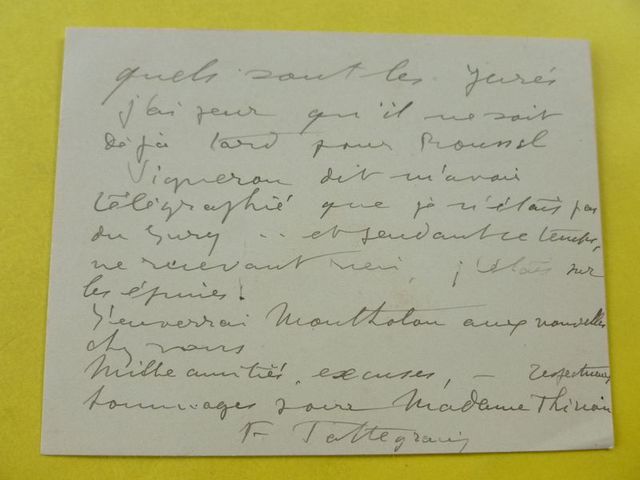 quels sont les Jurés
j'ai peur qu'il ne soit
déjà tard pour Roussel
Vigneron dit m'avoir
télégraphié que je n'étais pas
du Jury .. et pendant ce temps,
ne recevant rien, j'étais sur
les épines!
J'enverrai Montholon aux nouvelles
chez vous
Mille amitiés, excuses, – respectueux
hommages pour Madame Thirion
F Tattegrain